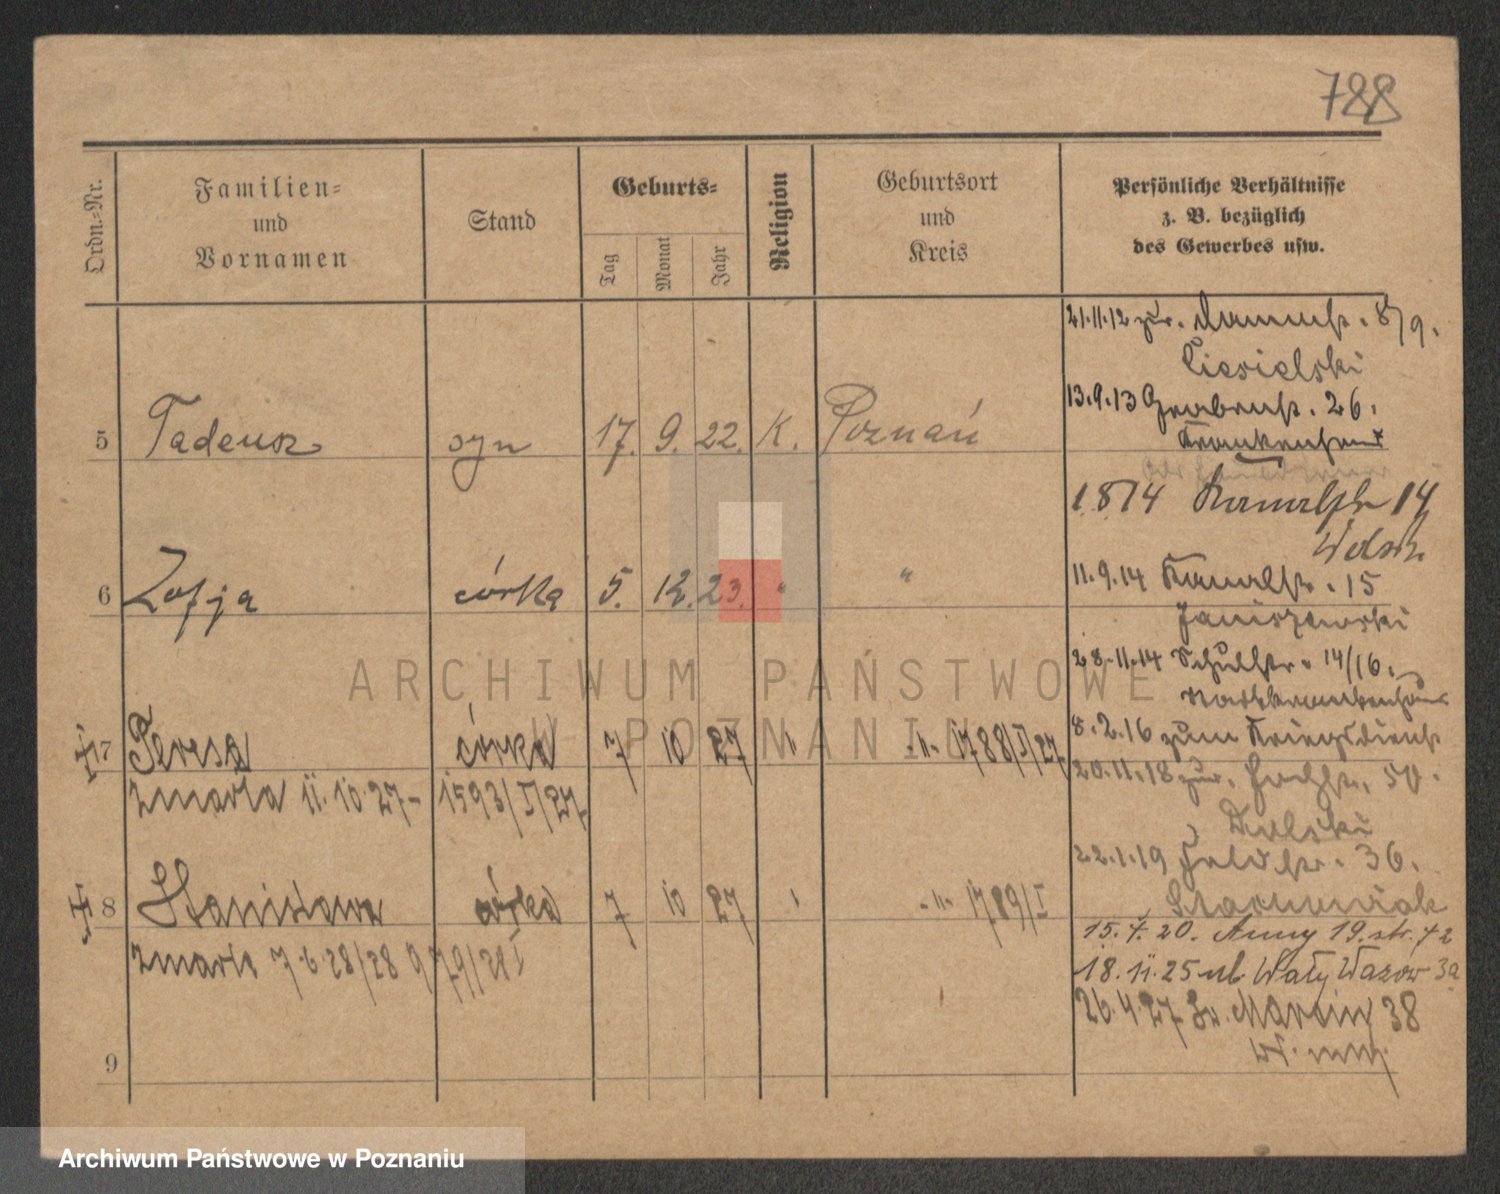 788
Ordn.-Nr.
Familien-
und
Vornamen
Stand
Geburts-
Tag
Monat
Jahr
Religion
Geburtsort
und
Kreis
Persönliche Verhältnisse
z. B. bezüglich
des Gewerbes usw.
21.11.12 zur. 8/9.
Ciesielski
13.9.13 Grabenstr. 26.
Krankenhaus
5 Tadeusz syn 17. 9. 22. K. Poznań
1.8.14 Kanalstr 14
11.9.14 Kanalstr. 15
6 Zofja córka 5. 12. 23. " "
Janiszewski
28.11.14 Schulstr. 14/16.
Stadtkrankenhaus
8.2.16 zum Kriegsdienst
7 Teresa córka 7 10 27 " -"- 1788/I/27
20.11.18 zur. 50.
zmarła 11.10.27- 1593/I/27
Dulski
22.1.19 Feldstr. 36.
8 Stanisława córka 7 10 27 " -"- 1789/I
15.4.20. Anny 19. str. 42
zmarła 7.6.28/28 979/28I
18.11.25 ul. Wały Wazów 3a
26.4.27 Św. Marcin 38
9
ARCHIWUM PAŃSTWOWE
W POZNANIU
Archiwum Państwowe w Poznaniu